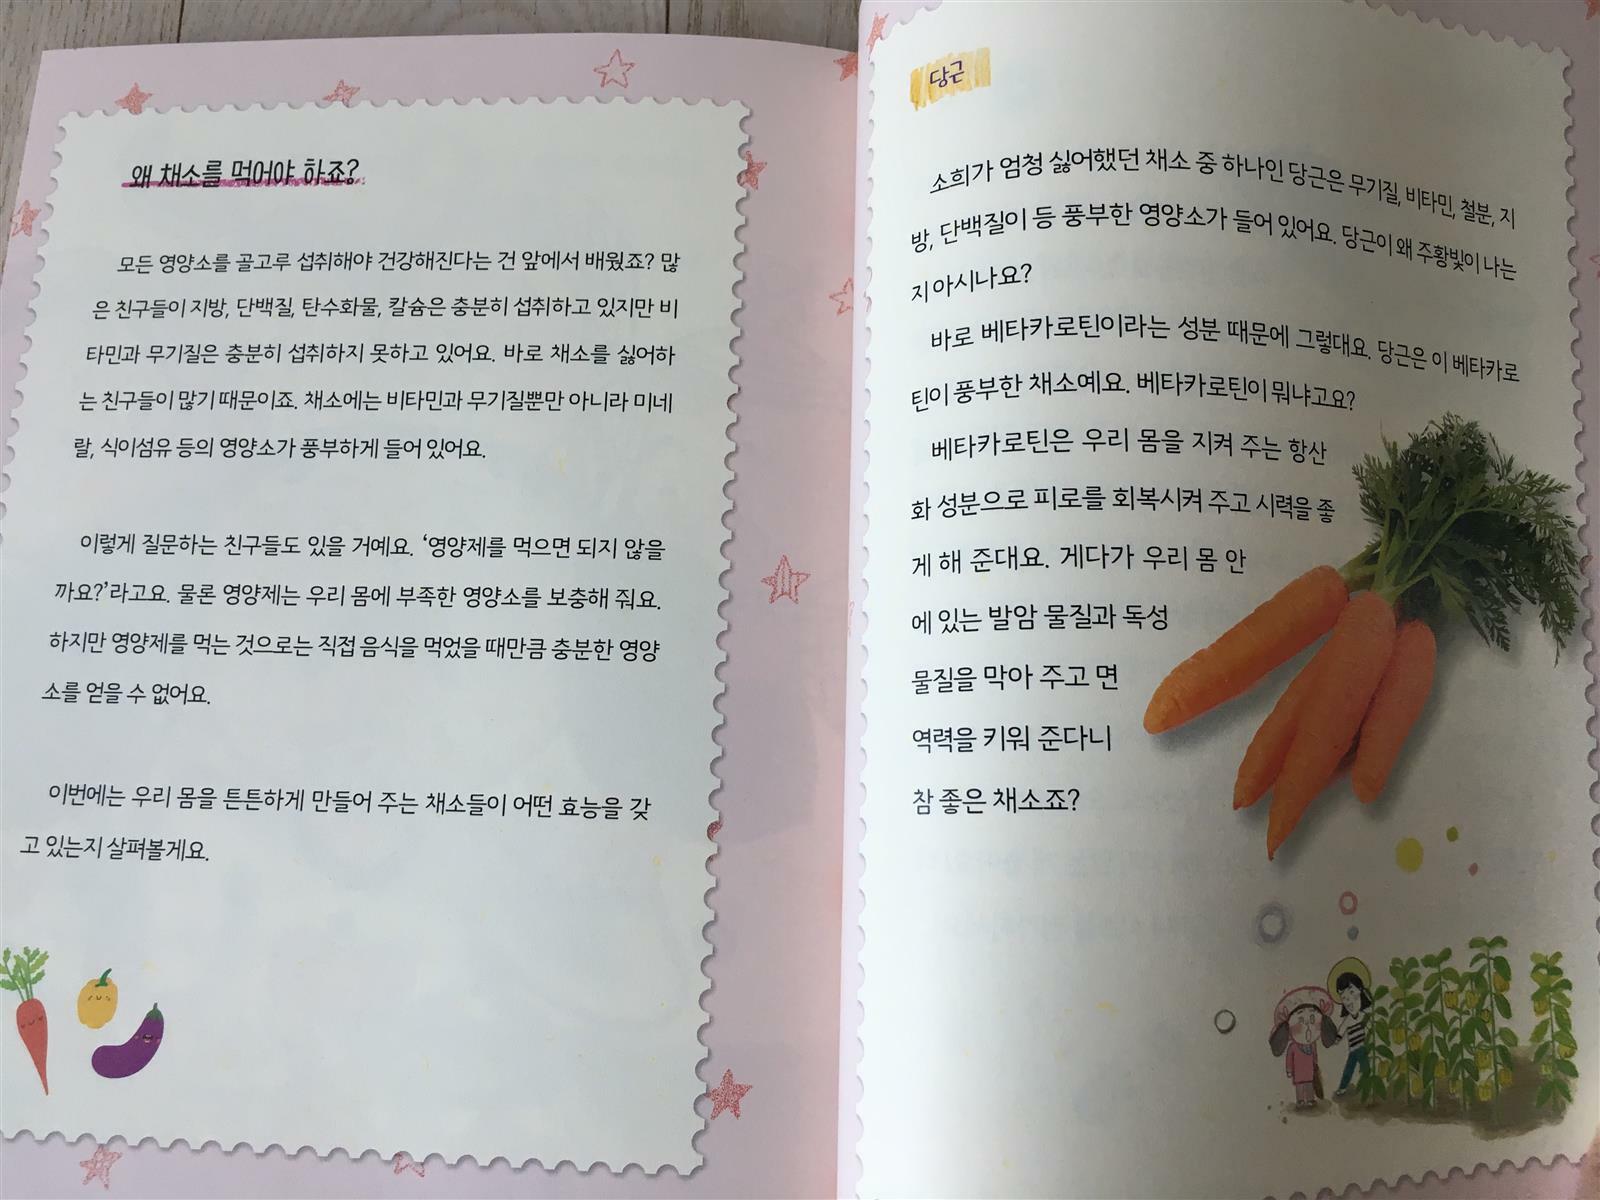 왜 채소를 먹어야 하죠?
모든 영양소를 골고루 섭취해야 건강해진다는 건 앞에서 배웠죠? 많
은 친구들이 지방, 단백질, 탄수화물, 칼슘은 충분히 섭취하고 있지만 비
타민과 무기질은 충분히 섭취하지 못하고 있어요. 바로 채소를 싫어하
는 친구들이 많기 때문이죠. 채소에는 비타민과 무기질뿐만 아니라 미네
랄, 식이섬유 등의 영양소가 풍부하게 들어 있어요.
이렇게 질문하는 친구들도 있을 거예요. ‘영양제를 먹으면 되지 않을
까요?’라고요. 물론 영양제는 우리 몸에 부족한 영양소를 보충해 줘요.
하지만 영양제를 먹는 것으로는 직접 음식을 먹었을 때만큼 충분한 영양
소를 얻을 수 없어요.
이번에는 우리 몸을 튼튼하게 만들어 주는 채소들이 어떤 효능을 갖
고 있는지 살펴볼게요.
당근
소희가 엄청 싫어했던 채소 중 하나인 당근은 무기질, 비타민, 철분, 지
방, 단백질이 등 풍부한 영양소가 들어 있어요. 당근이 왜 주황빛이 나는
지 아시나요?
바로 베타카로틴이라는 성분 때문에 그렇대요. 당근은 이 베타카로
틴이 풍부한 채소예요. 베타카로틴이 뭐냐고요?
베타카로틴은 우리 몸을 지켜 주는 항산
화 성분으로 피로를 회복시켜 주고 시력을 좋
게 해 준대요. 게다가 우리 몸 안
에 있는 발암 물질과 독성
물질을 막아 주고 면
역력을 키워 준다니
참 좋은 채소죠?